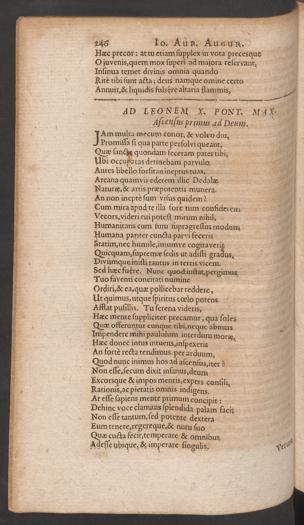 246 Io. Aur. Augur.
Hæc precor: at tu etiam supplex in vota precesque
O juvenis, quem mox superi ad majora reservant,
Insinua temet divinis omnia quando
Ritè tibi sunt acta; deus namque omine certo
Annuit, & liquidis fulsêre altaria flammis,
AD LEONEM X. PONT. MAX.
Ascensus primus ad Deum.
JAm multa mecum conor, & volvo diu,
Promissi si qua parte persolvi queant,
Quæ sanctè quondam feceram pater tibi,
Ubi occupatas detinebam parvulo
Aures libello forsitan ineptus tuas,
Arcana quamvis ederem illic Dedalæ
Naturæ, & artis præpotentis munera.
An non ineptè sum visus quidem?
Cum mira apud te illa fore tum confiderem
Vecors, videri cui potest mirum nihil,
Humanitatis cum tuta supragressus modum
Humana præter cuncta parvi feceris
Statim, nec humile, imumve cogitaveris
Quicquam, supremæ sedis ut adisti gradus,
Divumque misti tantus in terris vicem.
Sed hæc fuêre. Nunc quod instat, pergimus
Tuo faventi concitati numine
Ordiri, & ea, quæ pollicebar reddere,
Ut quimus, utque spiritus cœlo potens
Afflat pusillis. Tu serena videris,
Hæc mente suppliciter precamur, qua soles
Quæ offeruntur cunque tibi, neque abnuas
Impendere mihi paululum interdum moræ,
Hæc donec intus intuens, inspexeris
An fortè recta tendimus per arduum,
Quod nunc inimus hos ad ascensus, iter?
Non esse, secum dixit insanus, deum
Excorsque & impos mentis, expers consili,
Rationis, ac pietatis omnis indigens.
At esse sapiens mente primum concipit:
Dehinc voce clamans splendida palam facit
Non esse tantum, sed potente dextera
Eum tenere, regereque, & nutu suo
Quæ cuncta fecit, temperare & omnibus
Adesse ubique, & imperare singulis.